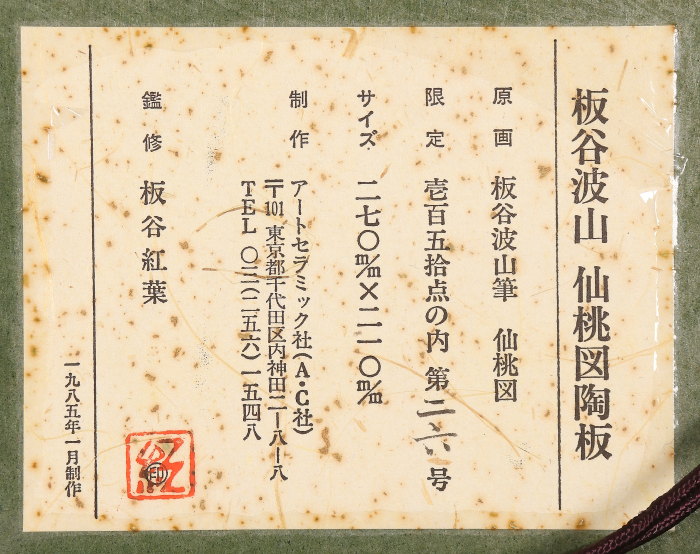 板谷波山 仙桃図陶板
原画 板谷波山筆 仙桃図
限定 壱百五拾点の内 第二六号
サイズ 二七〇m/m×二一〇m/m
制作 アートセラミック社(A・C社)
〒101 東京都千代田区内神田二ー八ー八
TEL 〇三(二五六)一五四八
鑑修 板谷紅葉
紅
印
一九八五年一月制作